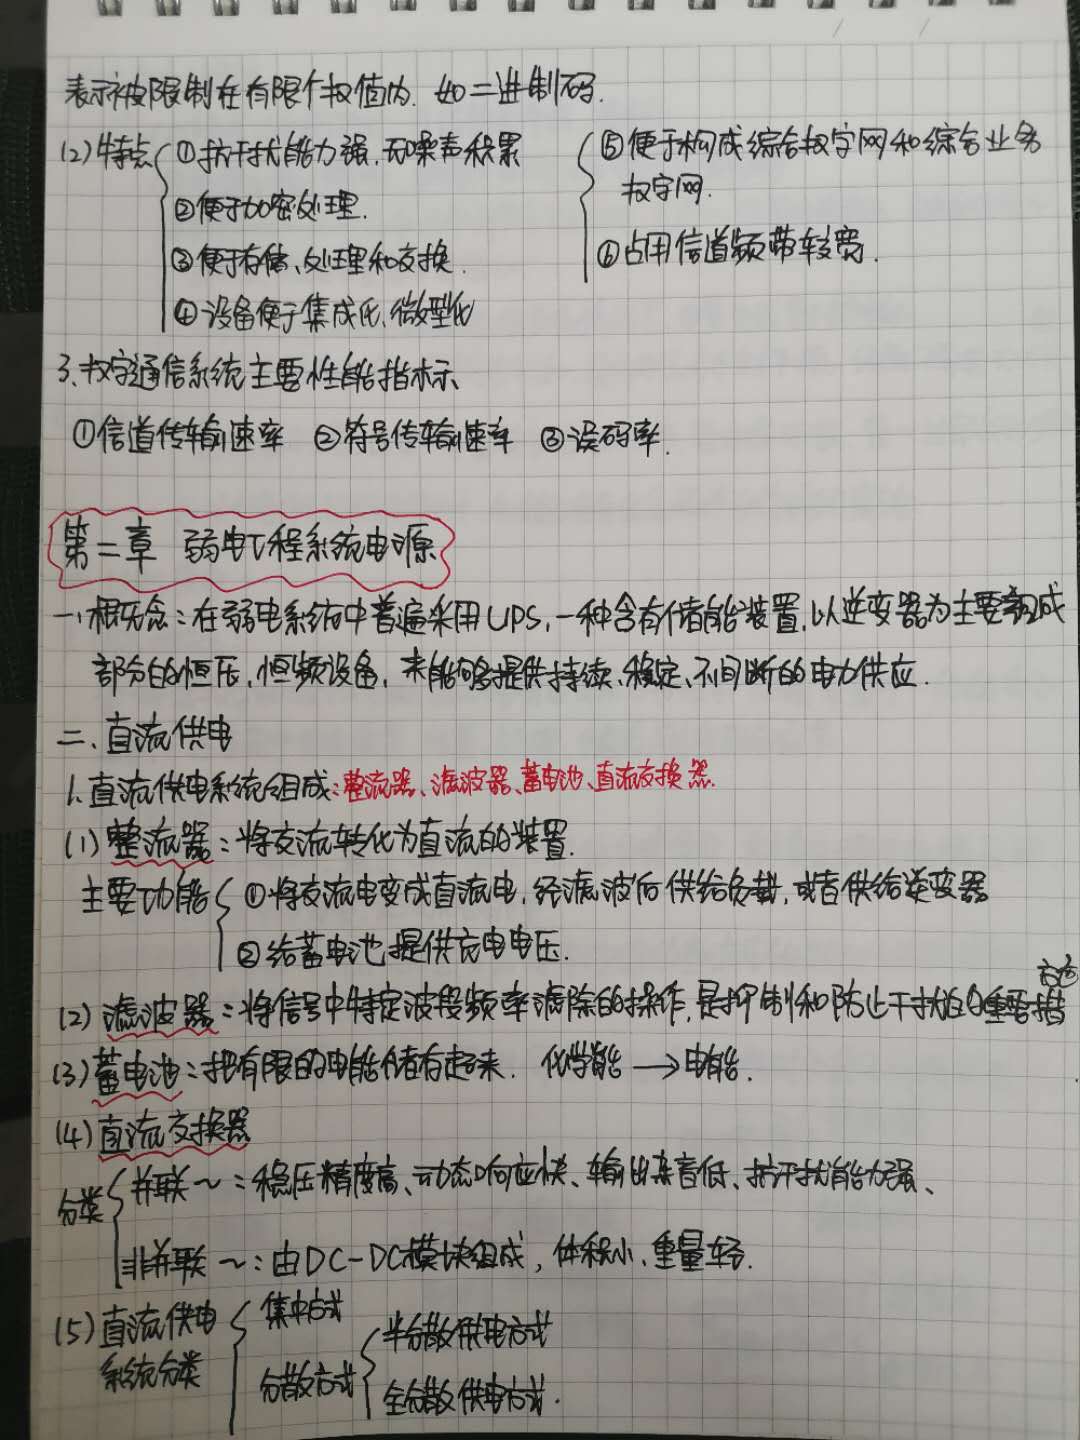 表示被限制在有限个数值内. 如二进制码.
(2)特点 ①抗干扰能力强,无噪声积累
②便于加密处理.
③便于存储、处理和交换.
④设备便于集成化,微型化
⑤便于构成综合数字网和综合业务
数字网.
⑥占用信道频带较宽.
3.数字通信系统主要性能指标
①信道传输速率 ②符号传输速率 ③误码率.
第二章 弱电工程系统电源
一、概念:在弱电系统中普遍采用UPS,一种含有储能装置,以逆变器为主要组成
部分的恒压,恒频设备,来能够提供持续、稳定、不间断的电力供应.
二、直流供电
1.直流供电系统组成:整流器、滤波器、蓄电池、直流变换器
(1)整流器:将交流转化为直流的装置.
主要功能 ①将交流电变成直流电,经滤波后供给负载,或者供给逆变器
②给蓄电池提供充电电压.
(2)滤波器:将信号中特定波段频率滤除的操作,是抑制和防止干扰的重要措
(3)蓄电池:把有限的电能储存起来. 化学能→电能.
(4)直流变换器
分类 并联~:稳压精度高、动态响应快、输出杂音低、抗干扰能力强、
非并联~:由DC-DC模块组成,体积小、重量轻.
(5)直流供电系统分类 集中方式
分散方式 半分散供电方式
全分散供电方式.